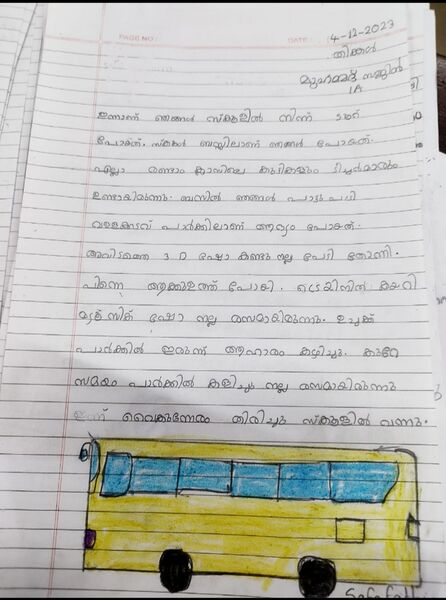 PAGE NO:
DATE: 4-12-2023
തിങ്കൾ
മുഹമ്മദ് സമ്മിൽ
1A
ഇന്നാണ് ഞങ്ങൾ സ്കൂളിൽ നിന്ന് ടൂർ
പോകുന്നത്. സ്കൂൾ ബസ്സിലാണ് ഞങ്ങൾ പോകുന്നത്.
എല്ലാ രണ്ടാം ക്ലാസിലെ കുട്ടികളും ടീച്ചർമാരും
ഉണ്ടായിരുന്നു. ബസിൽ ഞങ്ങൾ പാട്ടു പാടി
പാർക്കിലാണ് ആദ്യം പോകുന്നത്.
അവിടത്തെ 3 D ഷോ കണ്ടു നല്ല പേടി തോന്നി.
പിന്നെ പോയി. ട്രെയിനിൽ കയറി
മ്യൂസിക് ഷോ നല്ല രസമായിരുന്നു. ഉച്ചക്ക്
പാർക്കിൽ ഇരുന്ന് ആഹാരം കഴിച്ചു. കുറേ
സമയം പാർക്കിൽ കളിച്ചു നല്ല രസമായിരുന്നു
ഇന്ന് വൈകുന്നേരം തിരിച്ചു സ്കൂളിൽ വന്നു.